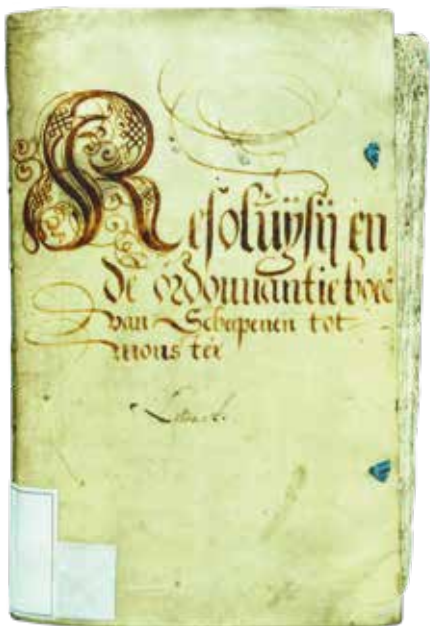 Resoluÿsij en
de ordonnantie boec
van Schepenen tot
mons ter